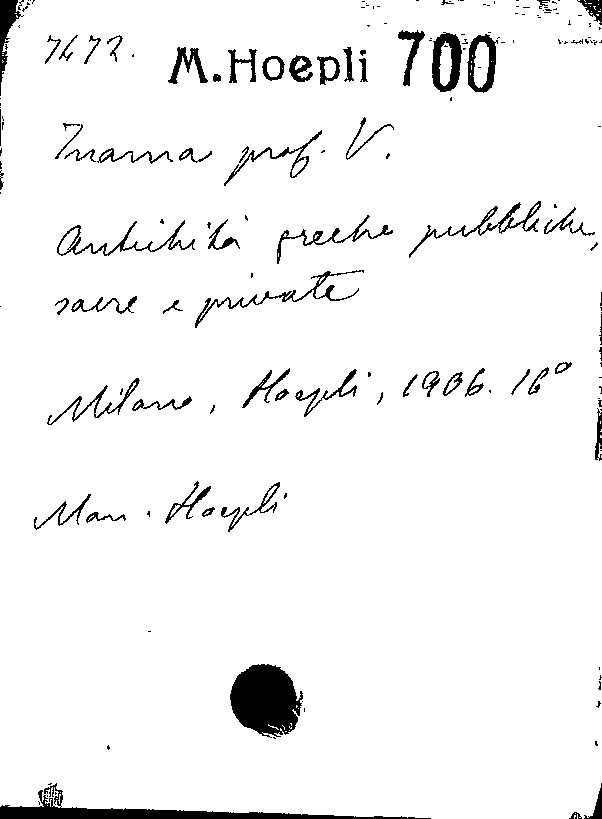 7472. M. Hoepli 700
Inama prof. V.
Antichità greche pubbliche,
sacre e private
Milano, Hoepli, 1906. 16°
Man. Hoepli